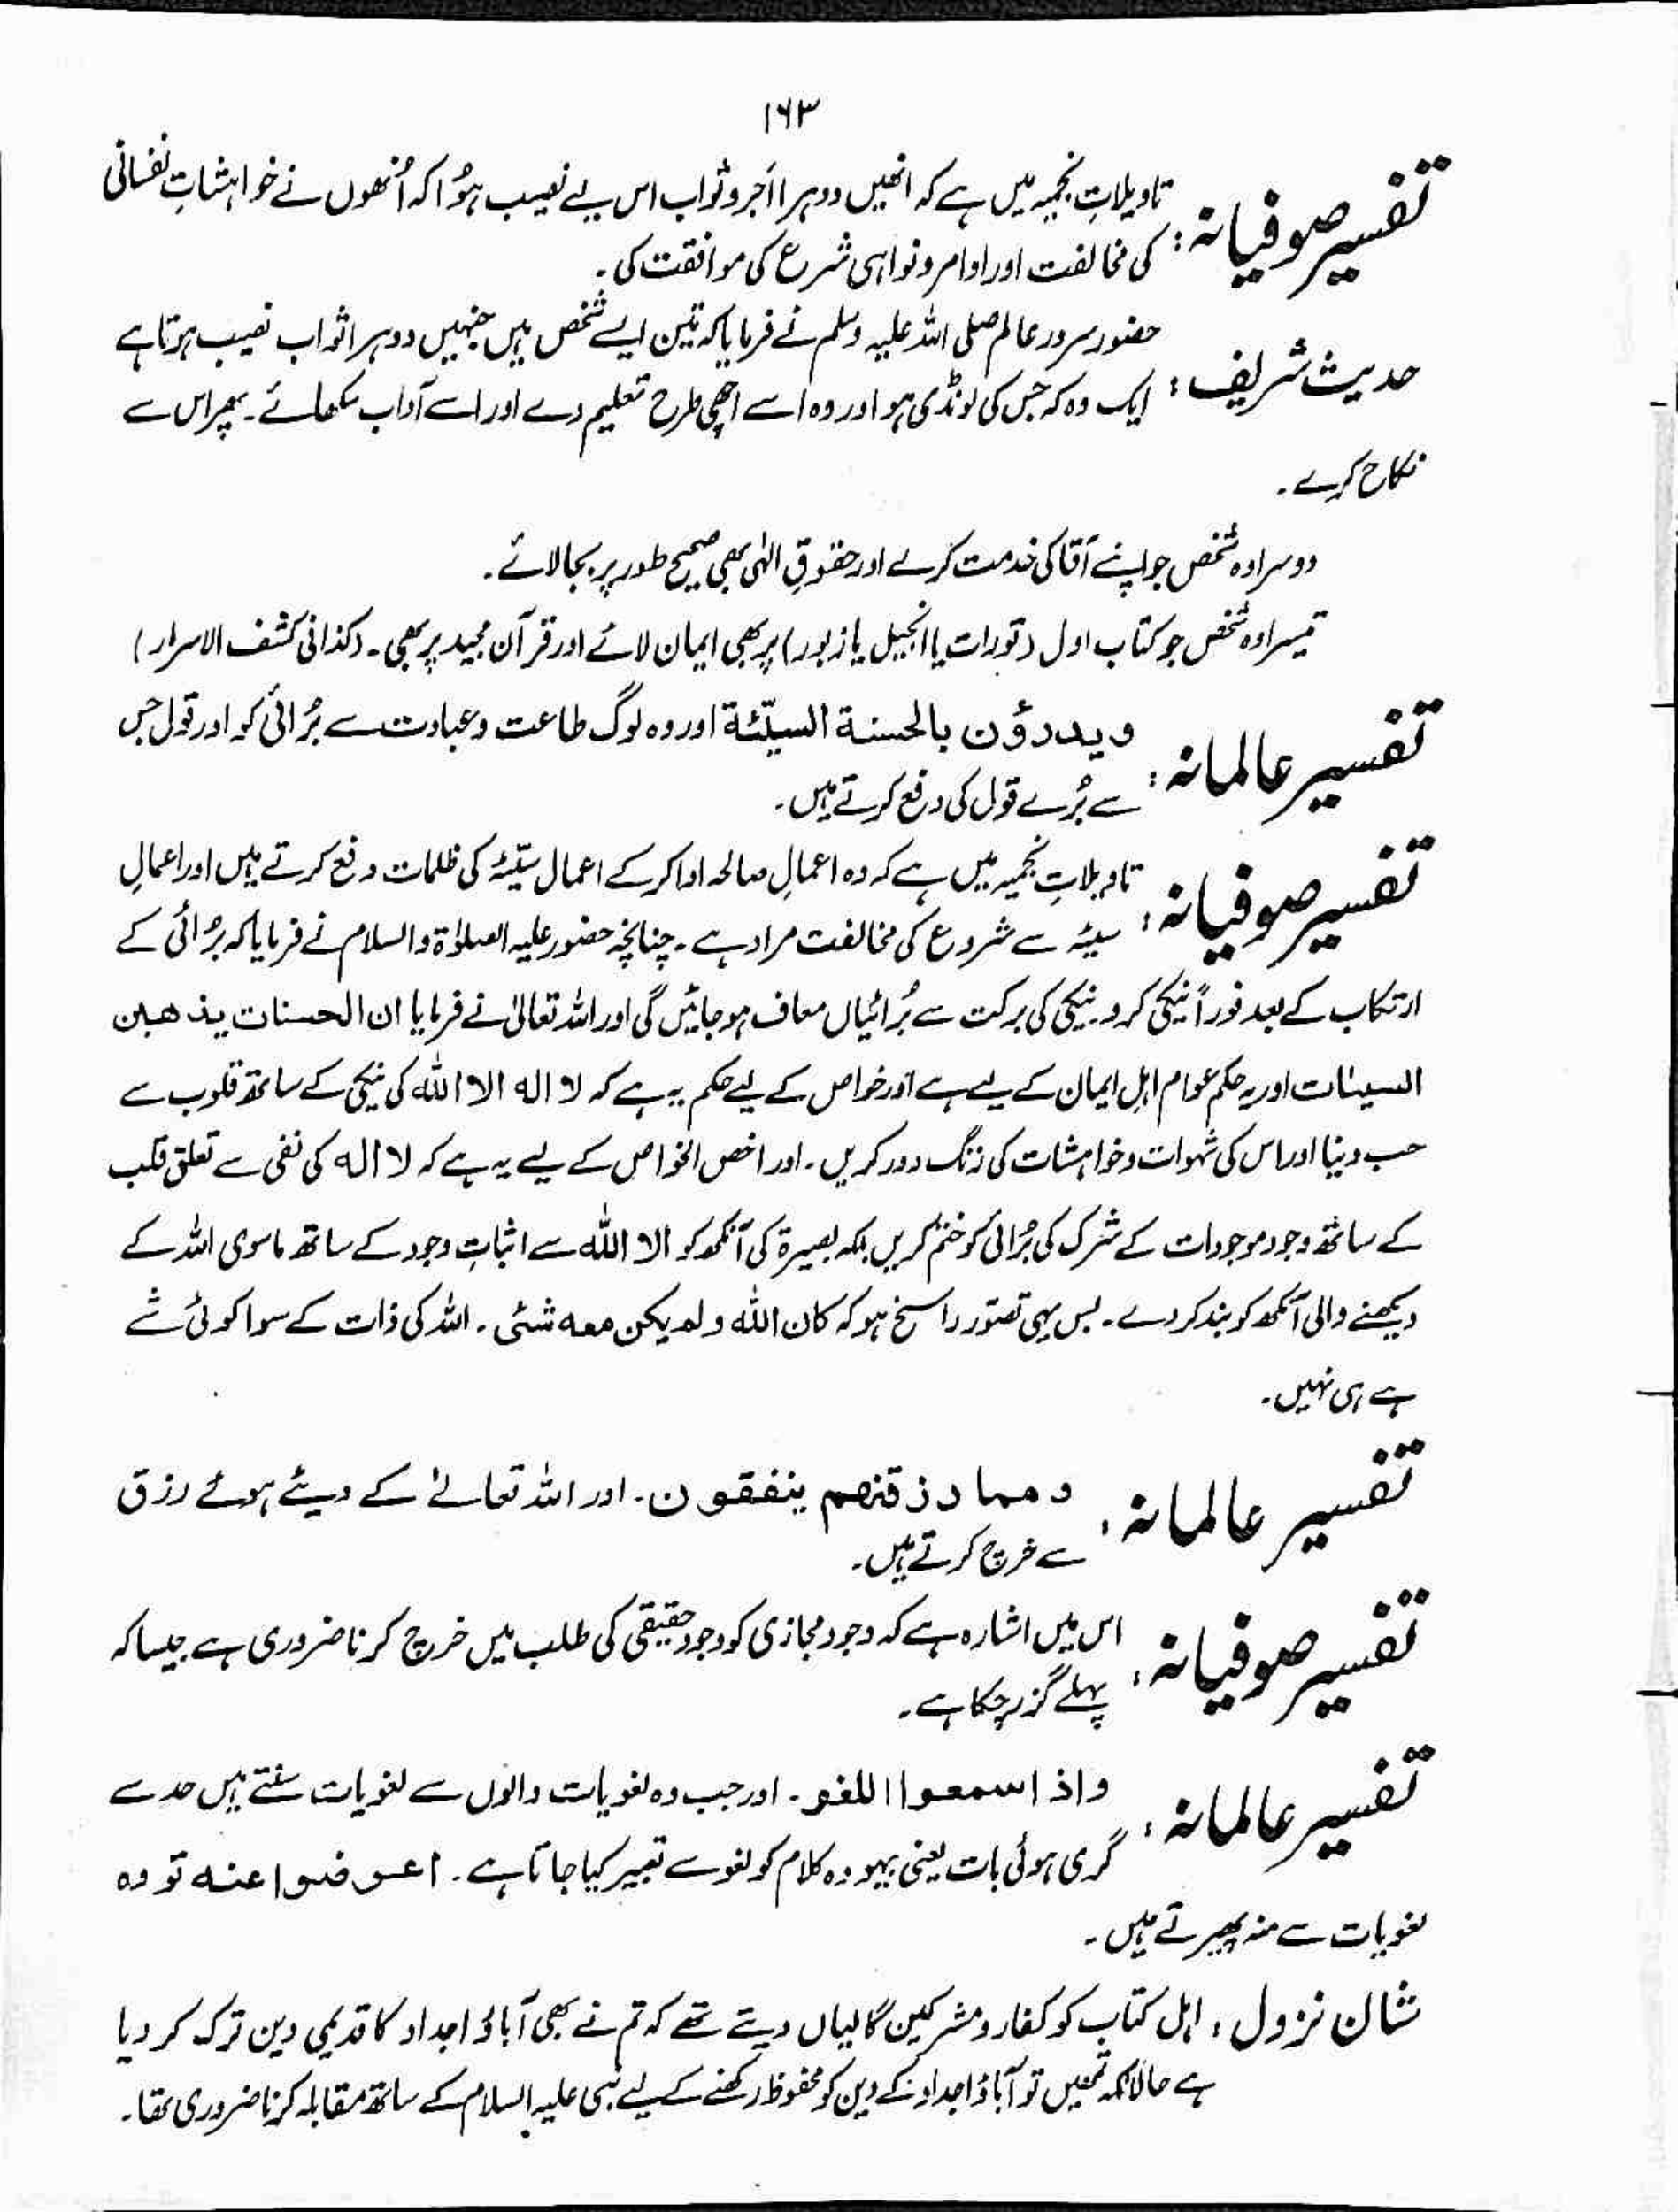 ۱۶۳
تفسیر صوفیانہ: تاویلاتِ نجمیہ میں ہے کہ انھیں دوہرا اَجر و ثواب اس لیے نصیب ہُوا کہ اُنھوں نے خواہشاتِ نفسانی
کی مخالفت اور اوامر و نواہی شرع کی موافقت کی۔
حدیث شریف: حضور سرور عالم صلی اللہ علیہ وسلم نے فرمایا کہ تین ایسے شخص ہیں جنہیں دوہرا ثواب نصیب ہوتا ہے
ایک وہ کہ جس کی لونڈی ہو اور وہ اسے اچھی طرح تعلیم دے اور اسے آداب سکھائے۔ پھر اس سے
نکاح کرے۔
دوسرا وہ شخص جو اپنے آقا کی خدمت کرے اور حقوقِ الٰہی بھی صحیح طور پر بجا لائے۔
تیسرا وہ شخص جو کتاب اول (تورات یا انجیل یا زبور) پر بھی ایمان لائے اور قرآن مجید پر بھی۔ (کذا فی کشف الاسرار)
تفسیر عالمانہ: ویدرؤن بالحسنة السیّئة اور وہ لوگ طاعت و عبادت سے بُرائی کو اور قول جس
سے بُرے قول کی دفع کرتے ہیں۔
تفسیر صوفیانہ: تاویلاتِ نجمیہ میں ہے کہ وہ اعمالِ صالحہ ادا کر کے اعمال سیّئہ کی ظلمات دفع کرتے ہیں اور اعمالِ
سیئہ سے شروع کی مخالفت مراد ہے۔ چنانچہ حضور علیہ الصلوٰۃ والسلام نے فرمایا کہ بُرائی کے
ارتکاب کے بعد فوراً نیکی کرو۔ نیکی کی برکت سے بُرائیاں معاف ہو جائیں گی اور اللہ تعالیٰ نے فرمایا ان الحسنات یذھبن
السیئات اور یہ حکم عوام اہلِ ایمان کے لیے ہے اور خواص کے لیے حکم یہ ہے کہ لا الہ الا اللہ کی نیکی کے ساتھ قلوب سے
حب دنیا اور اس کی شہوات و خواہشات کی زنگ دور کریں۔ اور اخص الخواص کے لیے یہ ہے کہ لا الہ کی نفی سے تعلق قلب
کے ساتھ وجود موجودات کے شرک کی بُرائی کو ختم کریں بلکہ بصیرۃ کی آنکھ کو الا اللہ سے اثباتِ وجود کے ساتھ ماسوی اللہ کے
دیکھنے والی آنکھ کو بند کر دے۔ بس یہی تصوّر راسخ ہو کہ کان اللہ و لم یکن معہ شئی۔ اللہ کی ذات کے سوا کوئی شے
ہے ہی نہیں۔
تفسیر عالمانہ: ومما رزقنٰھم ینفقون۔ اور اللہ تعالےٰ کے دیئے ہوئے رزق
سے خرچ کرتے ہیں۔
تفسیر صوفیانہ: اس میں اشارہ ہے کہ وجود مجازی کو وجود حقیقی کی طلب میں خرچ کرنا ضروری ہے جیسا کہ
پہلے گزر چکا ہے۔
تفسیر عالمانہ: واذا سمعوا اللغو۔ اور جب وہ لغویات والوں سے لغویات سنتے ہیں حد سے
گری ہوئی بات یعنی بیہودہ کلام کو لغو سے تعبیر کیا جاتا ہے۔ اعرضوا عنہ تو وہ
لغویات سے منہ پھیرتے ہیں۔
شان نزول: اہل کتاب کو کفار و مشرکین گالیاں دیتے تھے کہ تم نے بھی آباؤ اجداد کا قدیمی دین ترک کر دیا
ہے حالانکہ تمھیں تو آباؤ اجداد کے دین کو محفوظ رکھنے کے لیے نبی علیہ السلام کے ساتھ مقابلہ کرنا ضروری تھا۔